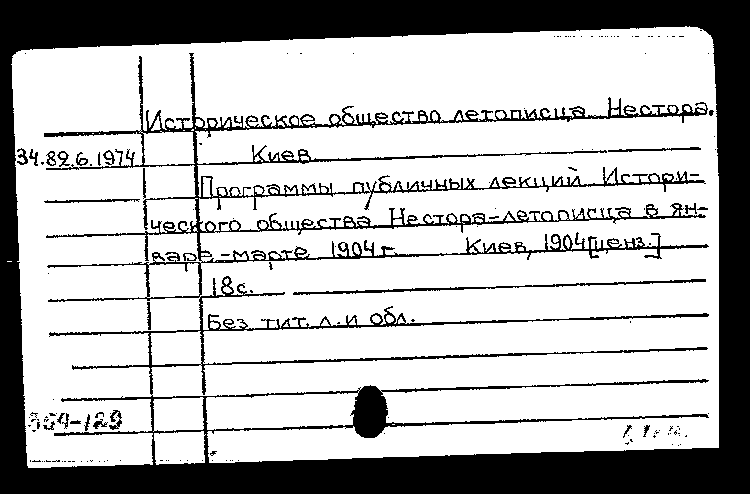 Историческое общество летописца Нестора.
34.82.6.1974 Киев
Программы публичных лекций Истори-
ческого общества Нестора-летописца в ян-
варе-марте 1904 г. Киев, 1904 [ценз.]
18 с.
Без тит. л. и обл.
364-129